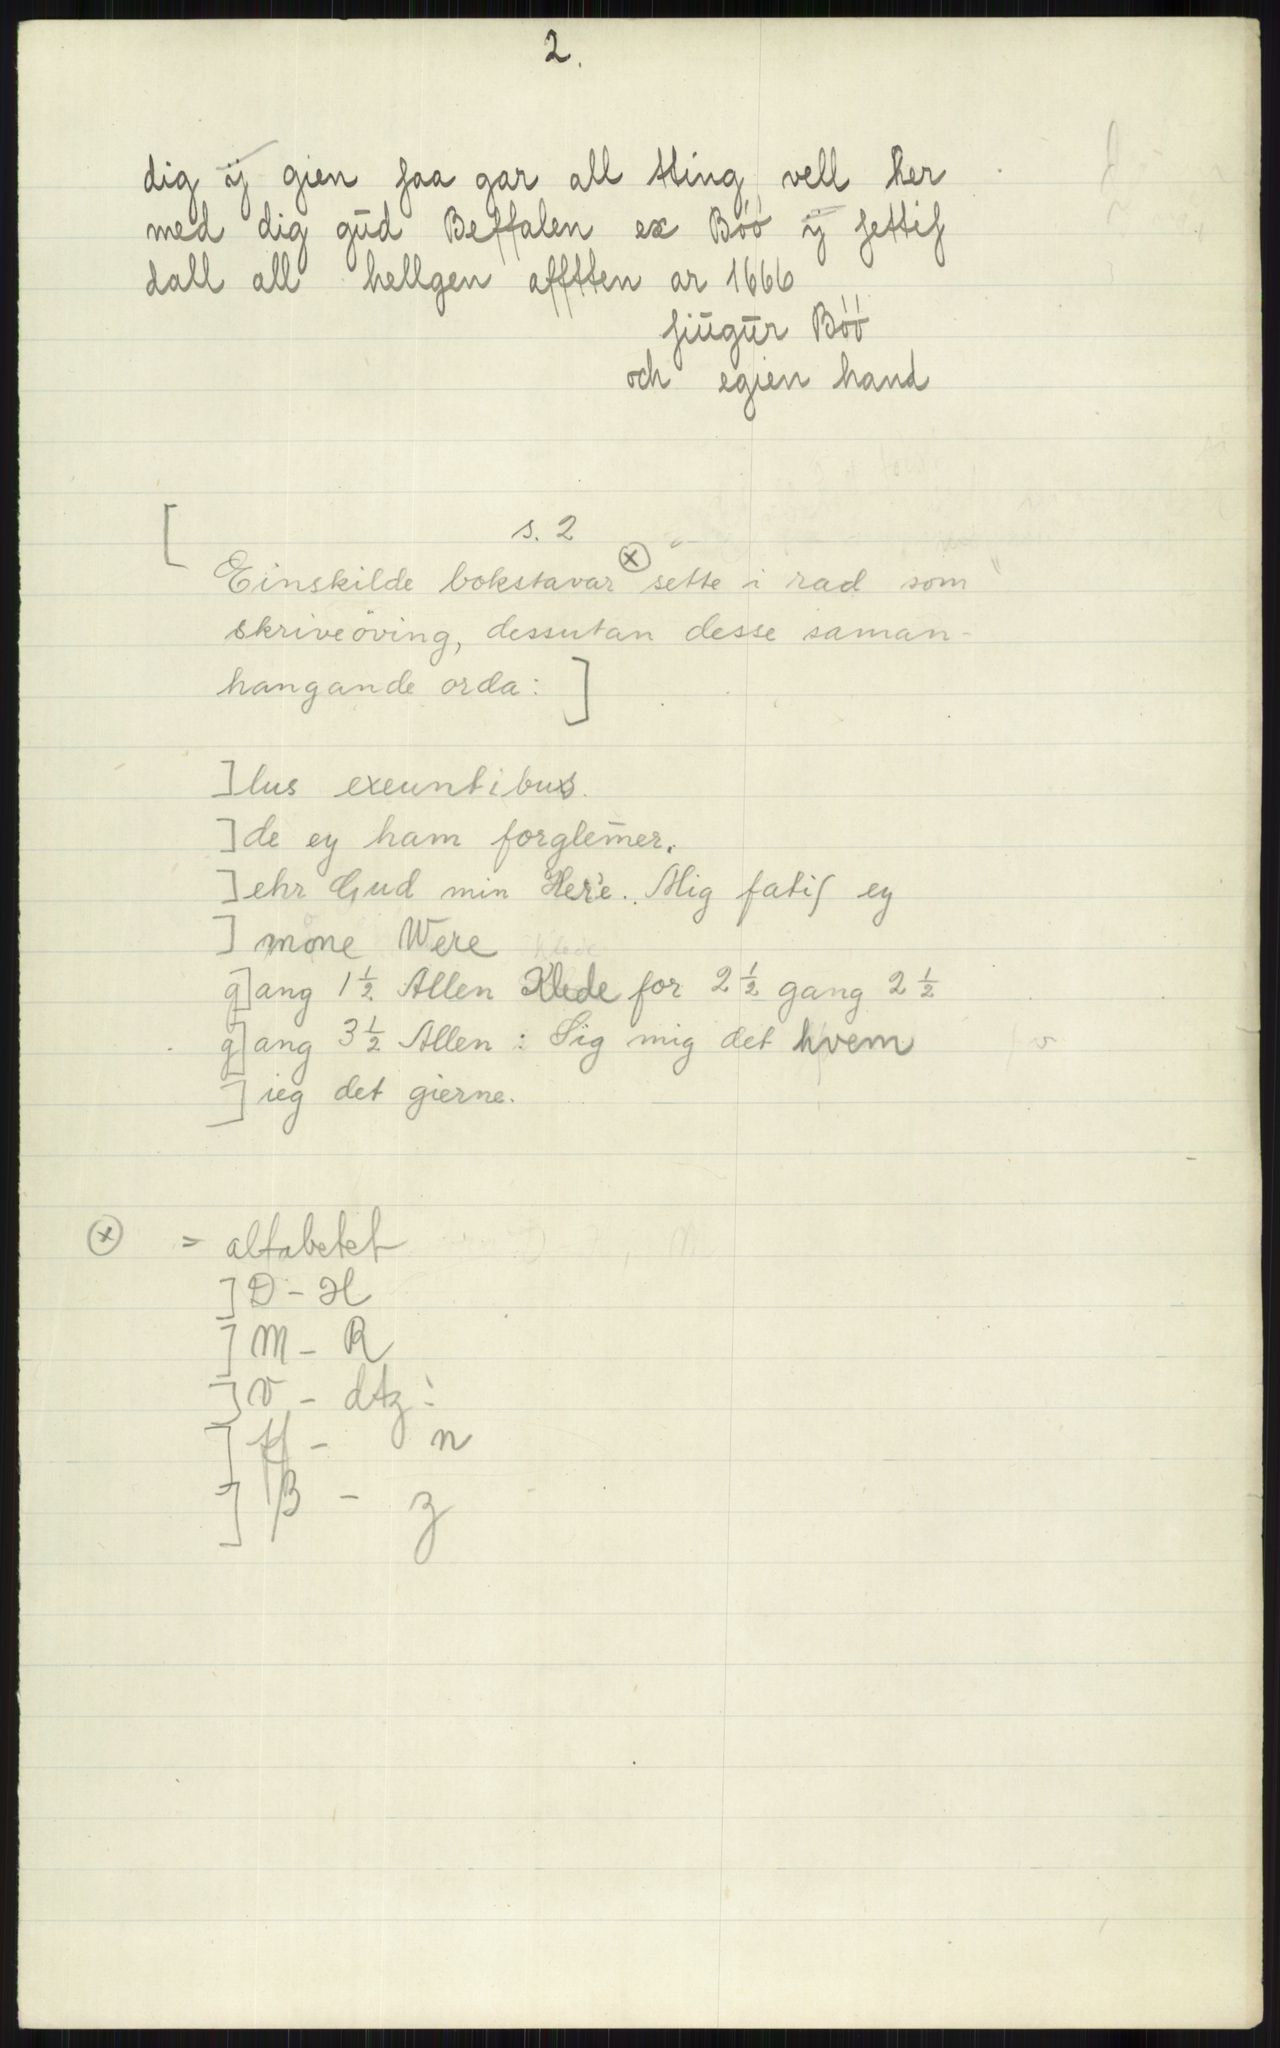 2.
dig ÿ gien ſaa gar all tting vell her
med dig gūd Beffalen ex Bóó ÿ ſettiſ
dall all hellgen afftten ar 1666
ſiūgūr Bóó
och egien hand
[ s. 2
Einskilde bokstavar ⓧ sette i rad som
skriveöving, dessutan desse saman-
hangande orda: ]
] lus exeuntibus.
] de ey ham forglem̄er.
] ehr Gud min Here. Mig fatiſ ey
] mone Were
g]ang 1½ Allen Klede for 2½ gang 2½
g]ang 3½ Allen : Sig mig det hvem
] ieg det gierne.
ⓧ = alfabetet
] D – H
] M – R
] V – dtz:
] ſſ – n
] ß – z